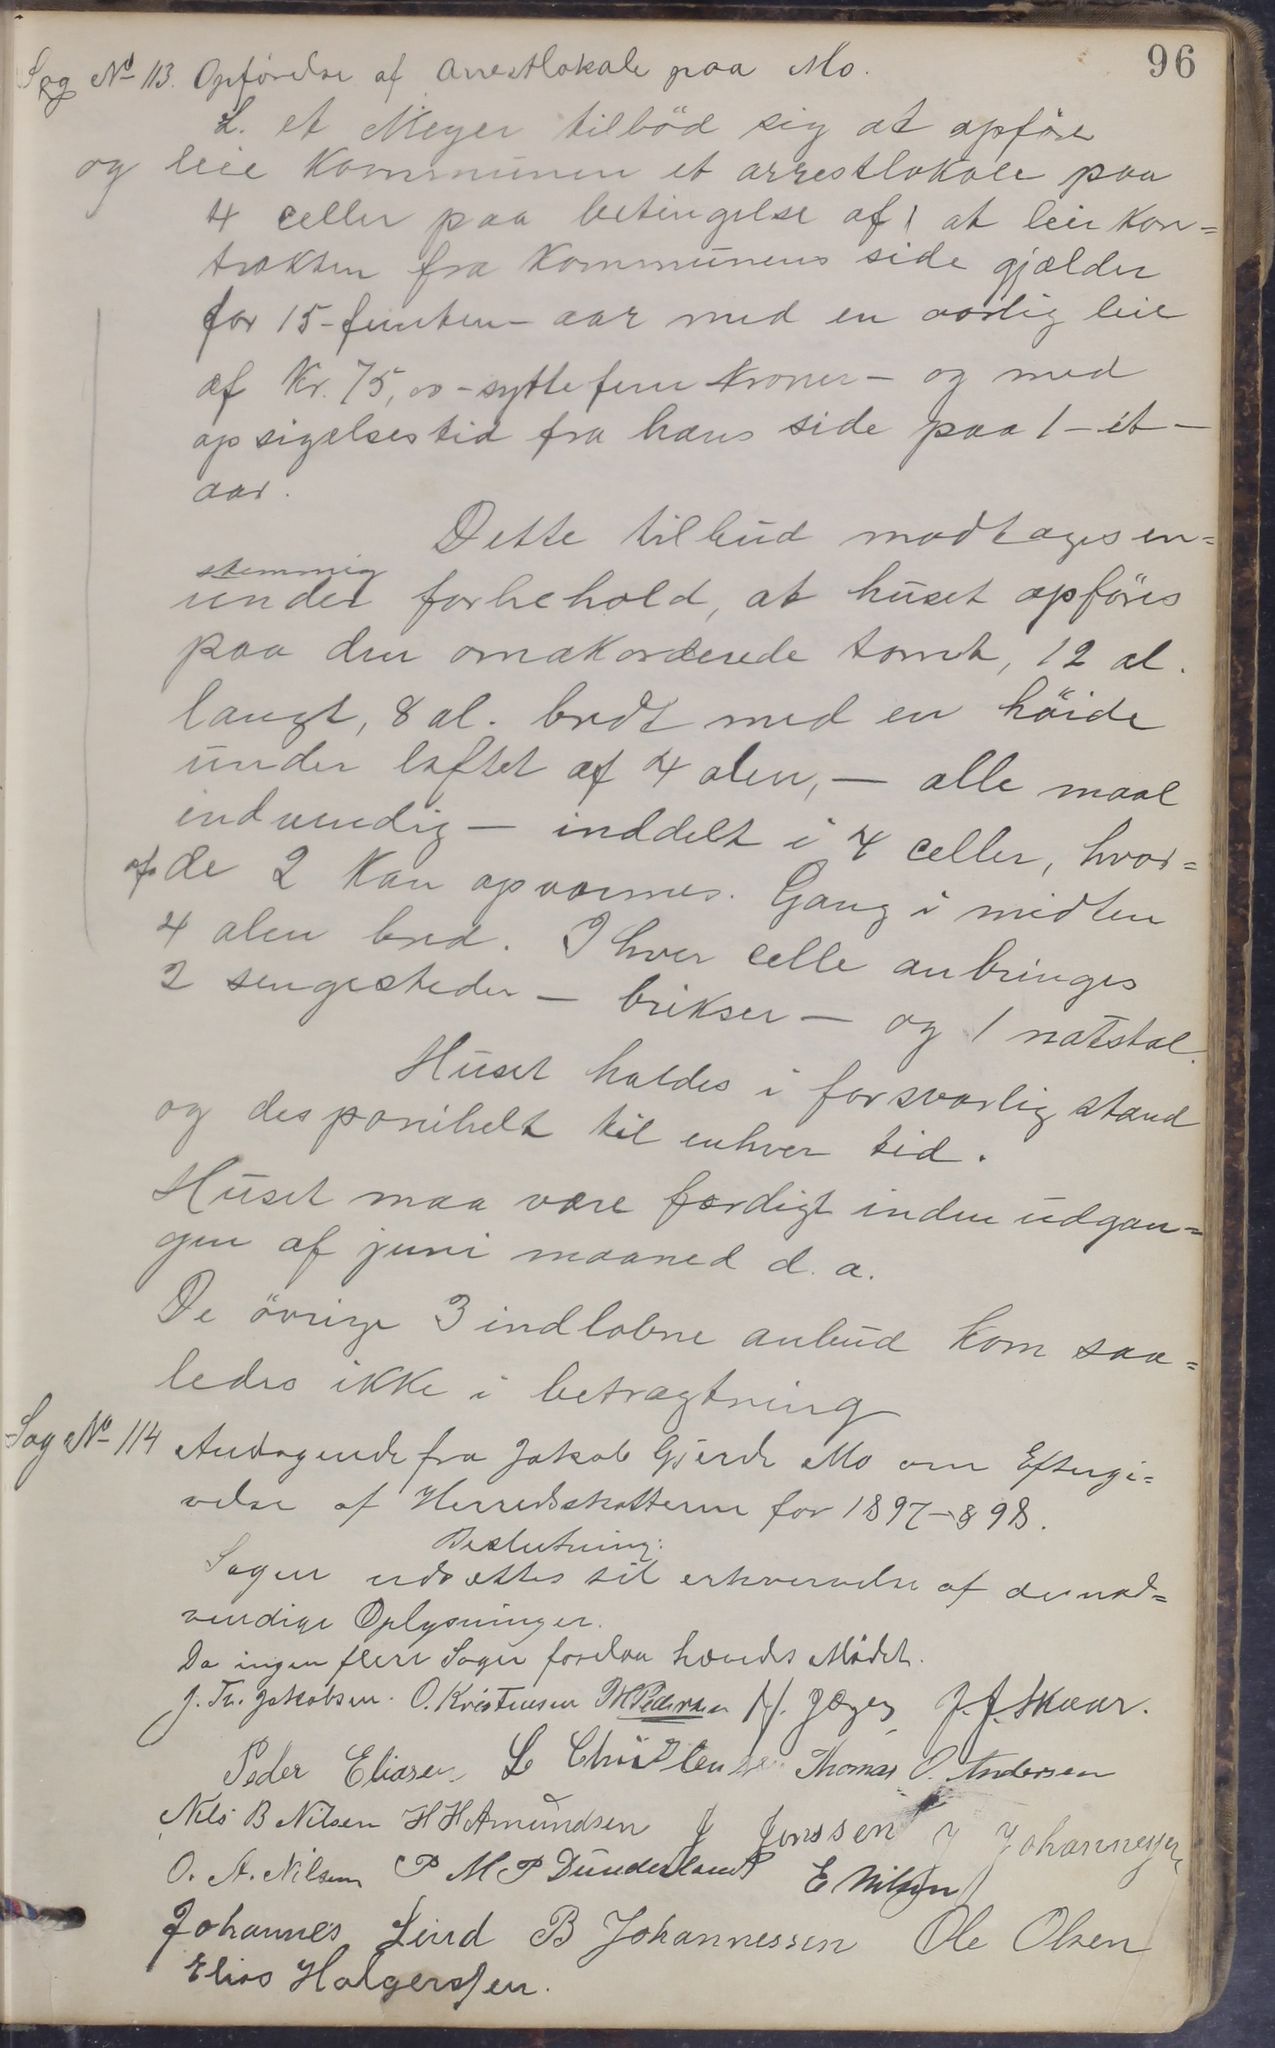 96
Sag No 113. Opførelse af Arrestlokale paa Mo.
L. A. Meyer tilbød sig at opføre
og leie Kommunen et arrestlokale paa
4 celler paa betingelse af, at leie Kon=
trakten fra Kommunens side gjælder
for 15-femten- aar med en aarlig leie
af Kr. 75,00 - syttifem Kroner - og med
opsigelsestid fra hans side paa 1 - ét -
aar.
Dette tilbud modtages en=
stemmig
under forbehold, at huset opføres
paa den omakorderede tomt, 12 al.
langt, 8 al. bredt med en høide
under loftet af 4 alen, — alle maal
indvendig — inddelt i 4 celler, hvor=
af de 2 Kan opvarmes. Gang i midten
4 alen bred. I hver celle anbringes
2 sengesteder — brikser — og 1 natstol.
Huset holdes i forsvarlig stand
og desponibelt til enhver tid.
Huset maa være færdigt inden udgan=
gen af juni maaned d. a.
De øvrige 3 indkobne anbud kom saa=
ledes ikke i betragtning
Sag No 114 Andragende fra Jakob Gjerde Mo om Eftergi=
velse af Herredsskatterne for 1897-898.
Beslutning:
Sagen udsættes til erhvervelse af de nød=
vendige Oplysninger.
Da ingen flere Sager forelaa hævedes Mødet.
J. Th. Jakobsen. O. Kristensen P M Pedersen N. Jæger J. J. Skaar.
Peder Eliasen L Christensen Thomas O. Andersen
Nils B Nilsen H H Amundsen J Jonssen J Johannessen
O. A. Nilsen P M P Dunderland E Nilsen
Johannes Lind B Johannessen Ole Olsen
Elias Holgerssen.